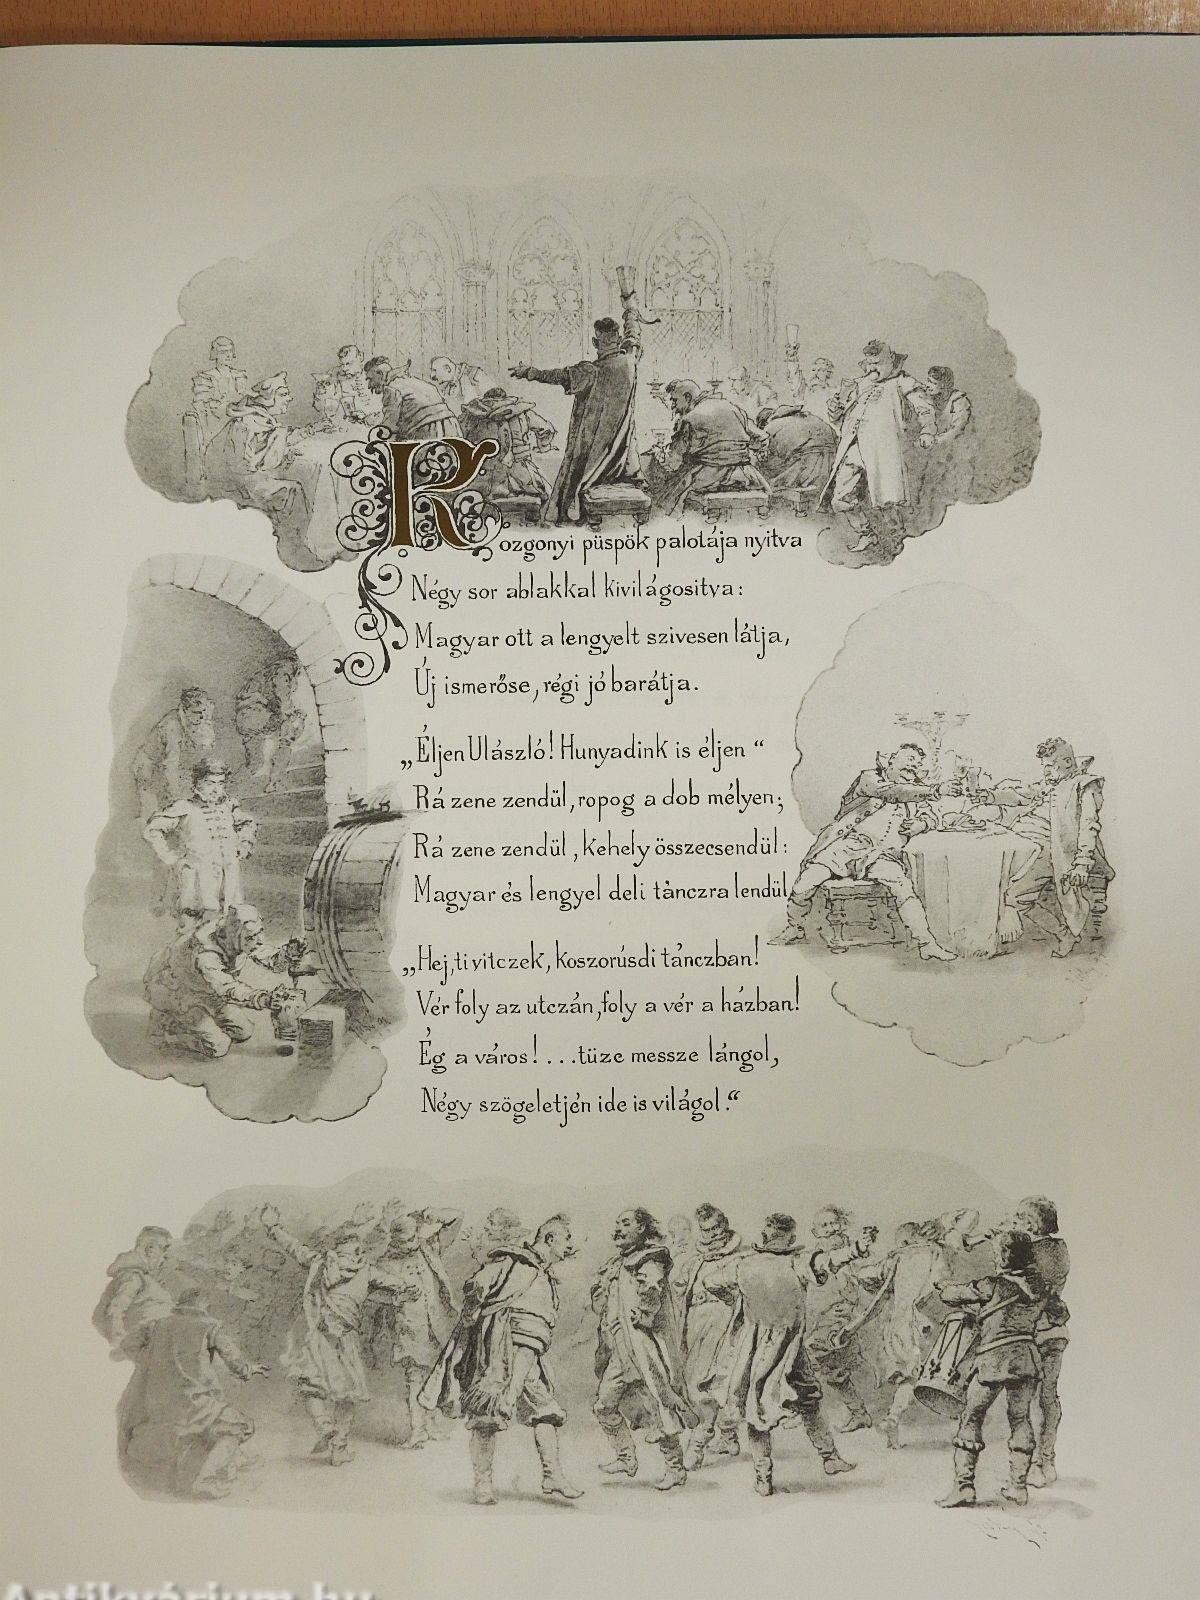 Rozgonyi püspök palotája nyitva
Négy sor ablakkal kivilágositva:
Magyar ott a lengyelt szivesen látja,
Új ismerőse, régi jó barátja.
„Éljen Ulászló! Hunyadink is éljen“
Rá zene zendül, ropog a dob mélyen;
Rá zene zendül, kehely összecsendül:
Magyar és lengyel deli tánczra lendül
„Hej, ti vitézek, koszorúsdi tánczban!
Vér foly az utczán, foly a vér a házban!
Ég a város! ... tüze messze lángol,
Négy szögeletjén ide is világol.“
Antikvárium.hu